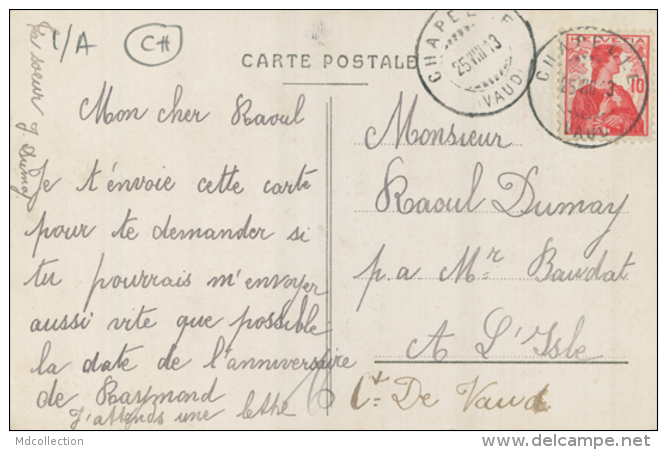 1/A
CH
CARTE POSTALE
CHAPELLE
25 VIII 13
(VAUD)
HELVETIA
10
CHAPELLE
25 VIII 13
VAUD
Ta soeur J. Dumay
Mon cher Raoul
Je t'envoie cette carte
pour te demander si
tu pourrais m'envoyer
aussi vite que possible
la date de l'anniversaire
de Raymond
J'attends une lettre
Monsieur
Raoul Dumay
p. a Mr Baudat
A L'Isle
Ct. De Vaud
Mdcollection
delcampe.net